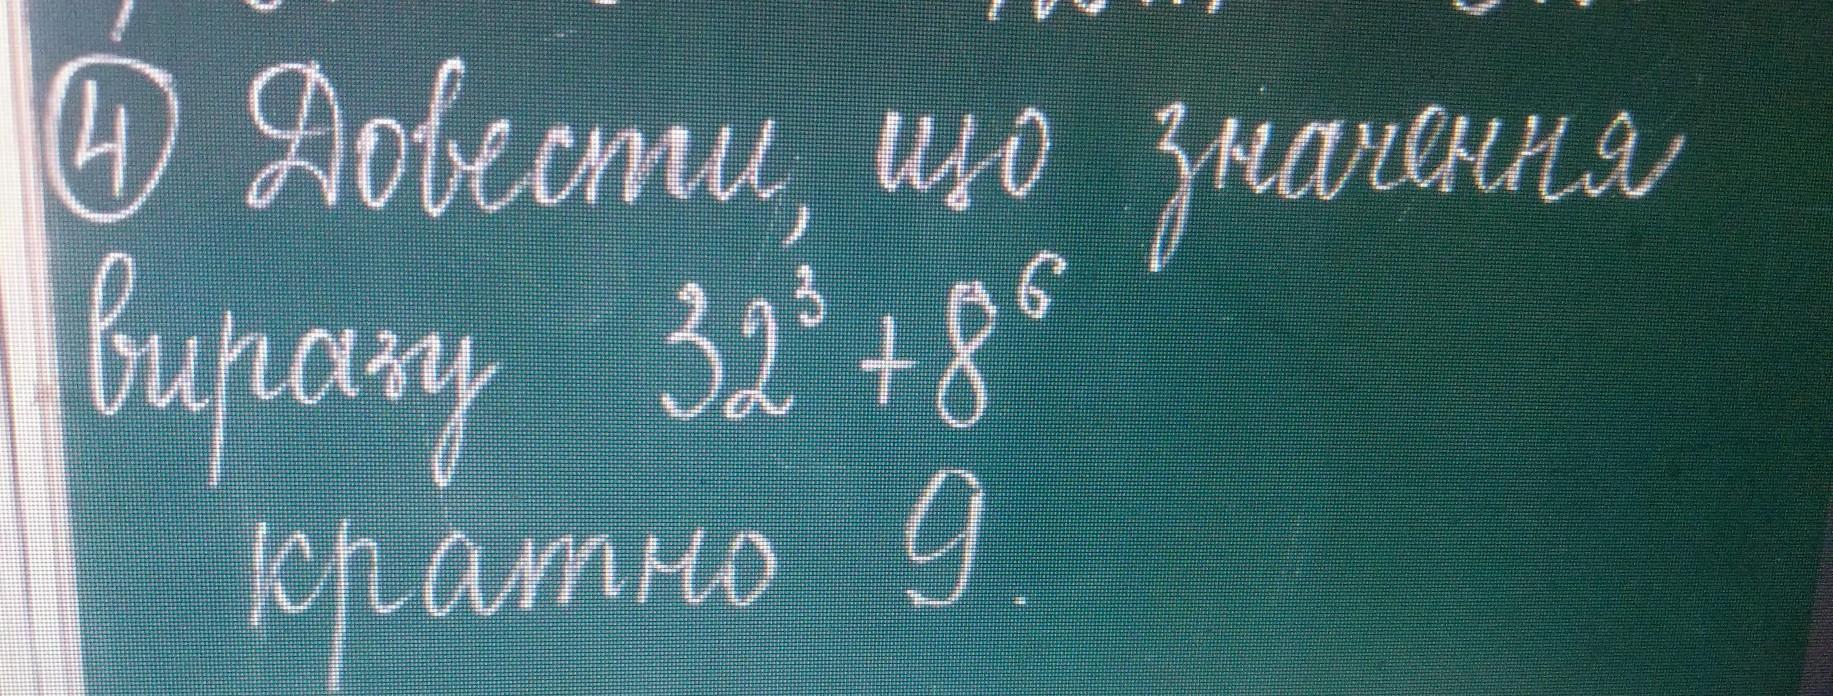 ④ Довести, що значення
виразу 32³+8⁶
кратно 9.